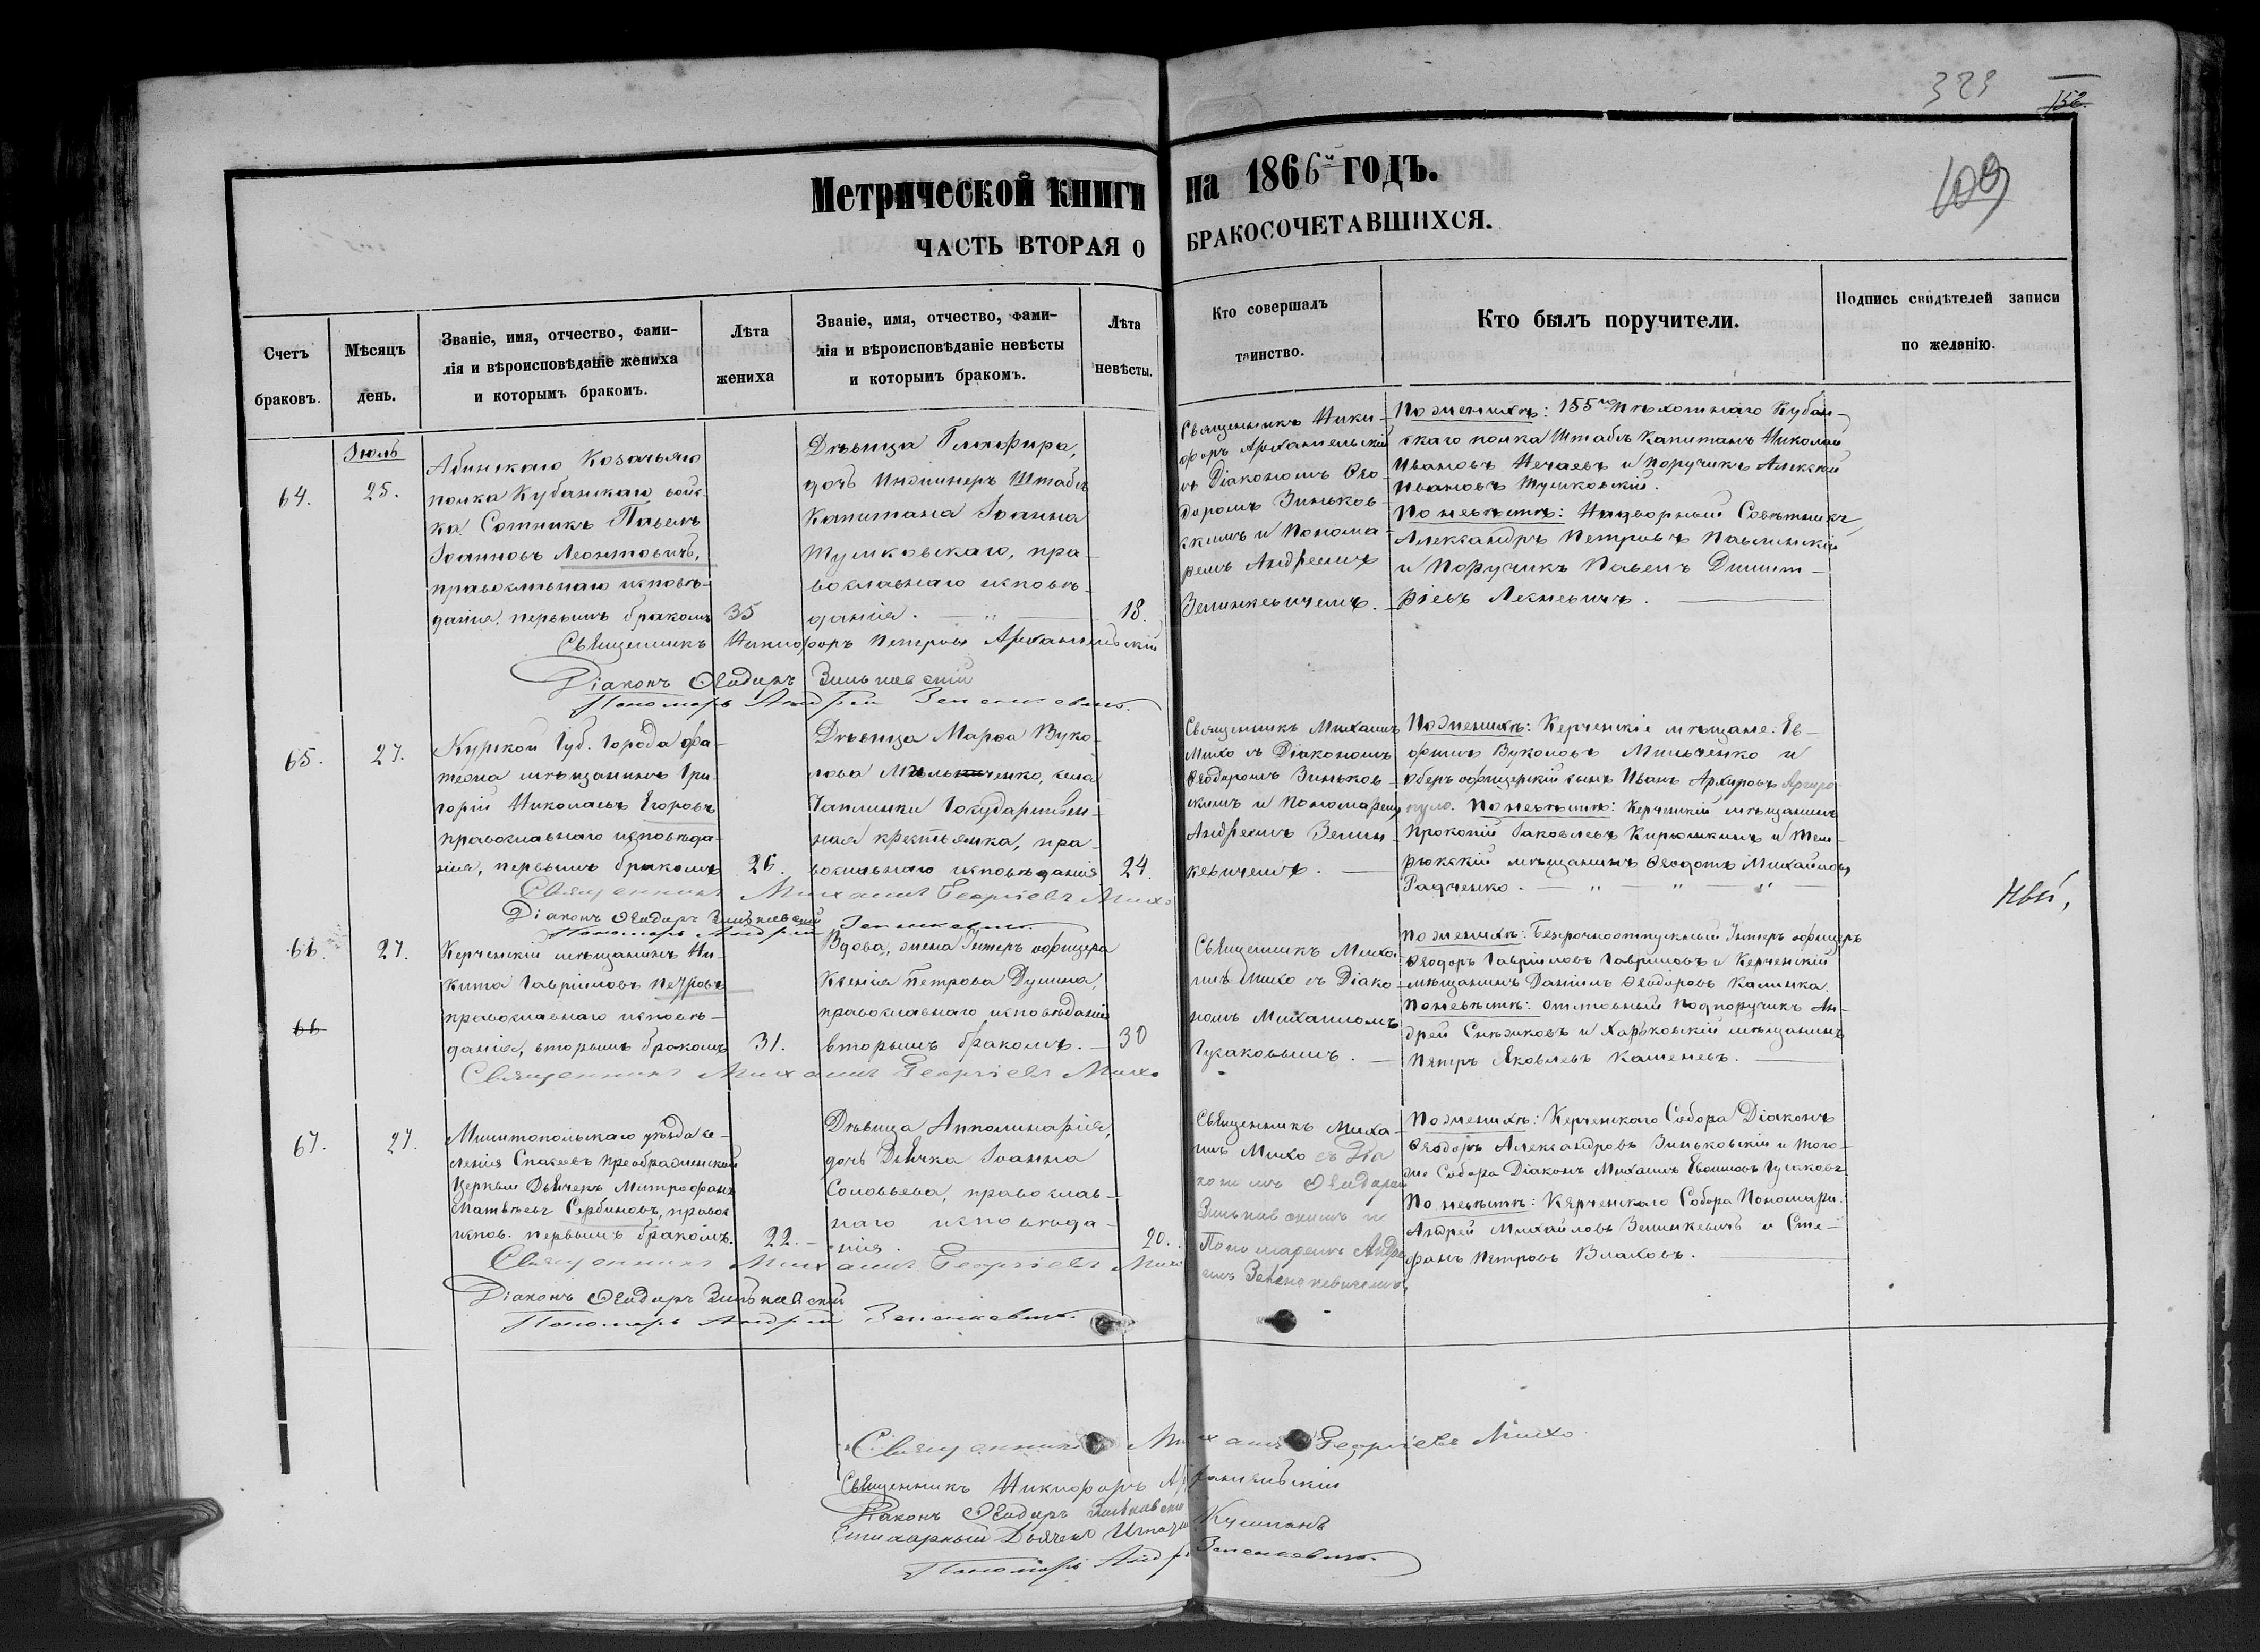 323
152.
109
Метрической книги на 1866й ГОДЪ.
ЧАСТЬ ВТОРАЯ О БРАКОСОЧЕТАВШИХСЯ.
Счетъ браковъ.
Мѣсяцъ день.
Званіе, имя, отчество, фами-
лія и вѣроисповѣданіе жениха
и которымъ бракомъ.
Лѣта
жениха
Званіе, имя, отчество, фами-
лія и вѣроисповѣданіе невѣсты
и которымъ бракомъ.
Лѣта
невѣсты.
Кто совершалъ
таинство.
Кто былъ поручители.
Подпись свидѣтелей записи
по желанію.
Іюль
64.
25.
Абинскаго Козачьяго
полка Кубанскаго войс-
ка Сотникъ Павелъ
Іоанновъ Леонтовичъ,
православнаго исповѣ-
данія, первымъ бракомъ
35
Дѣвица Глафира,
дочь Инжинеръ Штабсъ
Капитана Іоанна
Тумковскаго, пра-
вославнаго исповѣ-
данія.
18.
Священникъ Ники-
форъ Архангельскій
съ Діакономъ Ѳео-
доромъ Зиньков-
скимъ и Понома-
ремъ Андреемъ
Зелинкевичемъ.
По женихѣ: 155го Пѣхотнаго Кубан-
скаго полка Штабсъ Капитанъ Николай
Ивановъ Нечаевъ и Поручикъ Алексѣй
Ивановъ Тумковскій.
По невѣстѣ: Надворный Совѣтникъ
Александръ Петровъ Павлинскій
и Поручикъ Павелъ Димит-
ріевъ Лекневичъ.
Священникъ Никифоръ Петровъ Архангельскій
Діаконъ Ѳеодоръ Зиньковскій
Пономарь Андрей Зеленкевичъ.
65.
27.
Курской Губ. Города Фа-
тежа мѣщанинъ Гри-
горій Николаевъ Егоровъ
православнаго исповѣда-
нія, первымъ бракомъ
26.
Дѣвица Марѳа Вуко-
лова Мильченко, села
Чаплинки Государствен-
ная крестьянка, пра-
вославнаго исповѣданія
24.
Священникъ Михаилъ
Михо съ Діакономъ
Ѳеодоромъ Зиньков-
скимъ и Пономаремъ
Андреемъ Зелин-
кевичемъ.
По женихѣ: Керченскіе мѣщане: Ев-
фимъ Вуколовъ Мильченко и
Оберъ офицерскій сынъ Иванъ Аргировъ Аргиро-
пуло. По невѣстѣ: Керченскій мѣщанинъ
Прокопій Іаковлевъ Кирюшкинъ и Тем-
рюкскій мѣщанинъ Ѳеодотъ Михайловъ
Радченко.
Священникъ Михаилъ Георгіевъ Михо
Діаконъ Ѳеодоръ Зиньковскій
Пономарь Андрей Зеленкевичъ
66.
27.
66
Керченскій мѣщанинъ Ни-
кита Гавріиловъ Петровъ
православнаго исповѣ-
данія, вторымъ бракомъ
31.
Вдова, жена Унтеръ офицера
Ксенія Петрова Дунина,
православнаго исповѣданія
вторымъ бракомъ.
30
Священникъ Миха-
илъ Михо съ Діако-
номъ Михаиломъ
Гусаковымъ.
По женихѣ: Безсрочноотпускный Унтеръ офицеръ
Ѳеодоръ Гавріиловъ Гавриловъ и Керченскій
мѣщанинъ Даніилъ Ѳеодоровъ Калинка.
По невѣстѣ: отставный Подпоручикъ Ан-
дрей Снѣжковъ и Харьковскій мѣщанинъ
Петръ Яковлевъ Каменевъ.
Священникъ Михаилъ Георгіевъ Михо
67.
27.
Мелитопольскаго уѣзда се-
ленія Спасское Преображенской
Церкви Дьячекъ Митрофанъ
Матвѣевъ Сербиновъ, правос
испов. первымъ бракомъ.
22.
Дѣвица Апполинарія,
дочь Дьячка Іоанна
Соловьева, православ-
наго исповѣда-
нія.
20.
Священникъ Миха-
илъ Михо съ Діа
кономъ Ѳеодоромъ
Зиньковскимъ и
Пономаремъ Андре
емъ Зеленкевичемъ.
По женихѣ: Керченскаго Собора Діаконъ
Ѳеодоръ Александровъ Зиньковскій и того-
же Собора Діаконъ Михаилъ Евѳимовъ Гусаковъ
По невѣстѣ: Керченскаго Собора Пономарь
Андрей Михайловъ Зелинкевичъ и Сте-
фанъ Петровъ Влаховъ.
Священникъ Михаилъ Георгіевъ Михо
Діаконъ Ѳеодоръ Зиньковскій
Пономарь Андрей Зеленкевичъ.
Священникъ Михаилъ Георгіевъ Михо
Священникъ Никифоръ Архангельскій
Діаконъ Ѳеодоръ Зиньковскій
Стихарный Дьячекъ
Пономарь Андрей Зеленкевичъ.